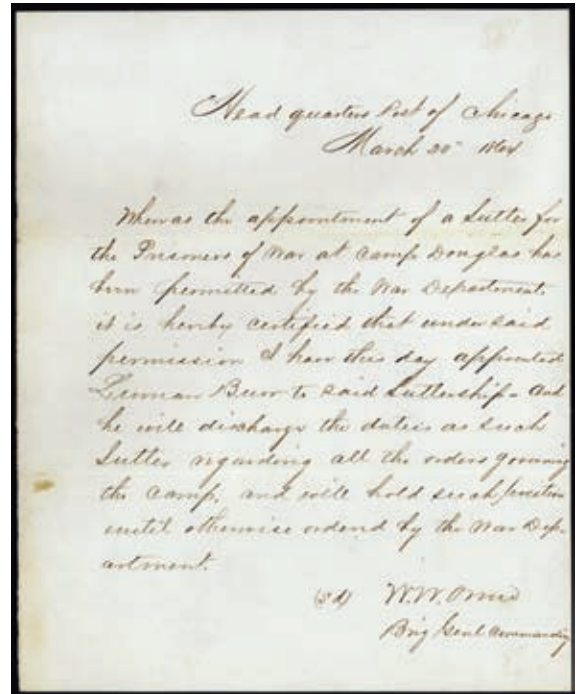 Head quarters Post of Chicago
March 20" 1864
Whereas the appointment of a Sutler for
the Prisoners of War at Camp Douglas has
been permitted by the War Department
it is hereby certified that under said
permission I have this day appointed
Burr to said Sutlership - And
he will discharge the duties as such
Sutler regarding all the orders governing
the Camp, and will hold such position
until otherwise ordered by the War Dep-
artment.
(sd) W.W. Orme
Brig Genl Commanding